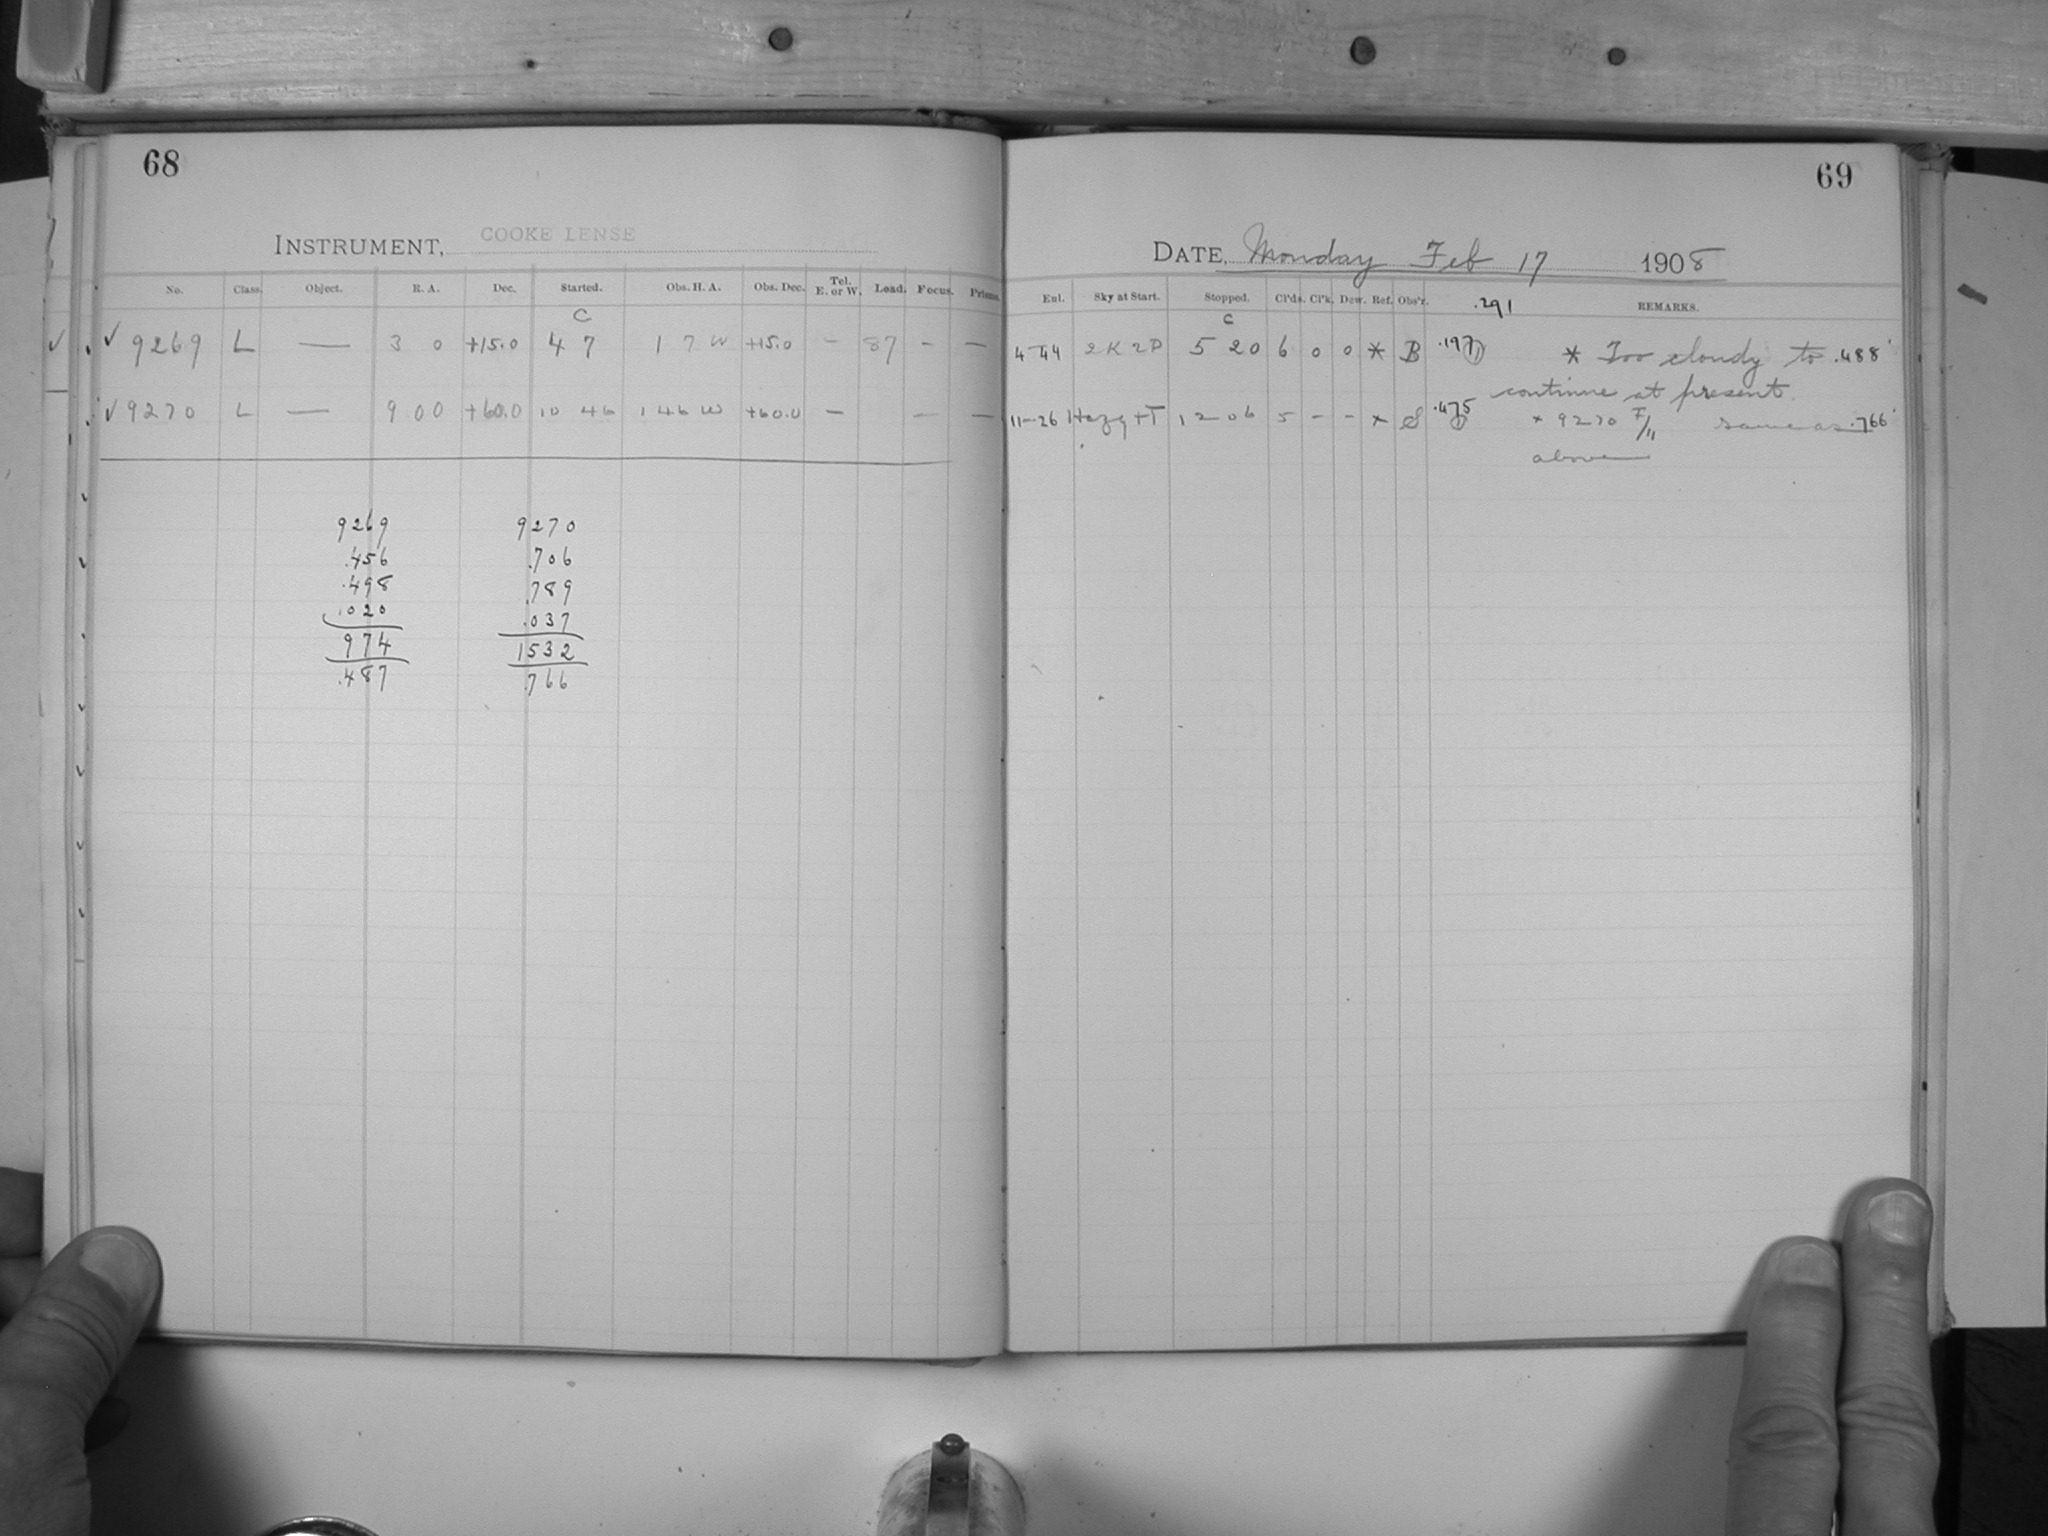 68
INSTRUMENT, COOKE LENSE
No. Class. Object. R. A. Dec. Started. Obs. H. A. Obs. Dec. Tel. E. or W. Lead. Focus. Prisms.
C
✓ ✓ 9269 L — 3 0 +15.0 4 7 1 7 W +15.0 – 87 – –
✓ 9270 L — 9 00 +60.0 10 46 1 46 W +60.0 – – –
9269 9270
.456 .706
.498 .789
.020 .037
974 1532
.487 .766
69
DATE, Monday Feb 17 1908
Enl. Sky at Start. Stopped. Cl'ds. Cl'k. Dew. Ref. Obs'r. .291 REMARKS.
C
4-44 2K 2P 5 20 6 0 0 * B .197 * Too cloudy to .488
continue at present
11-26 Hazy + T 12 06 5 – – * S .475 * 9270 F/11 same as .766
above